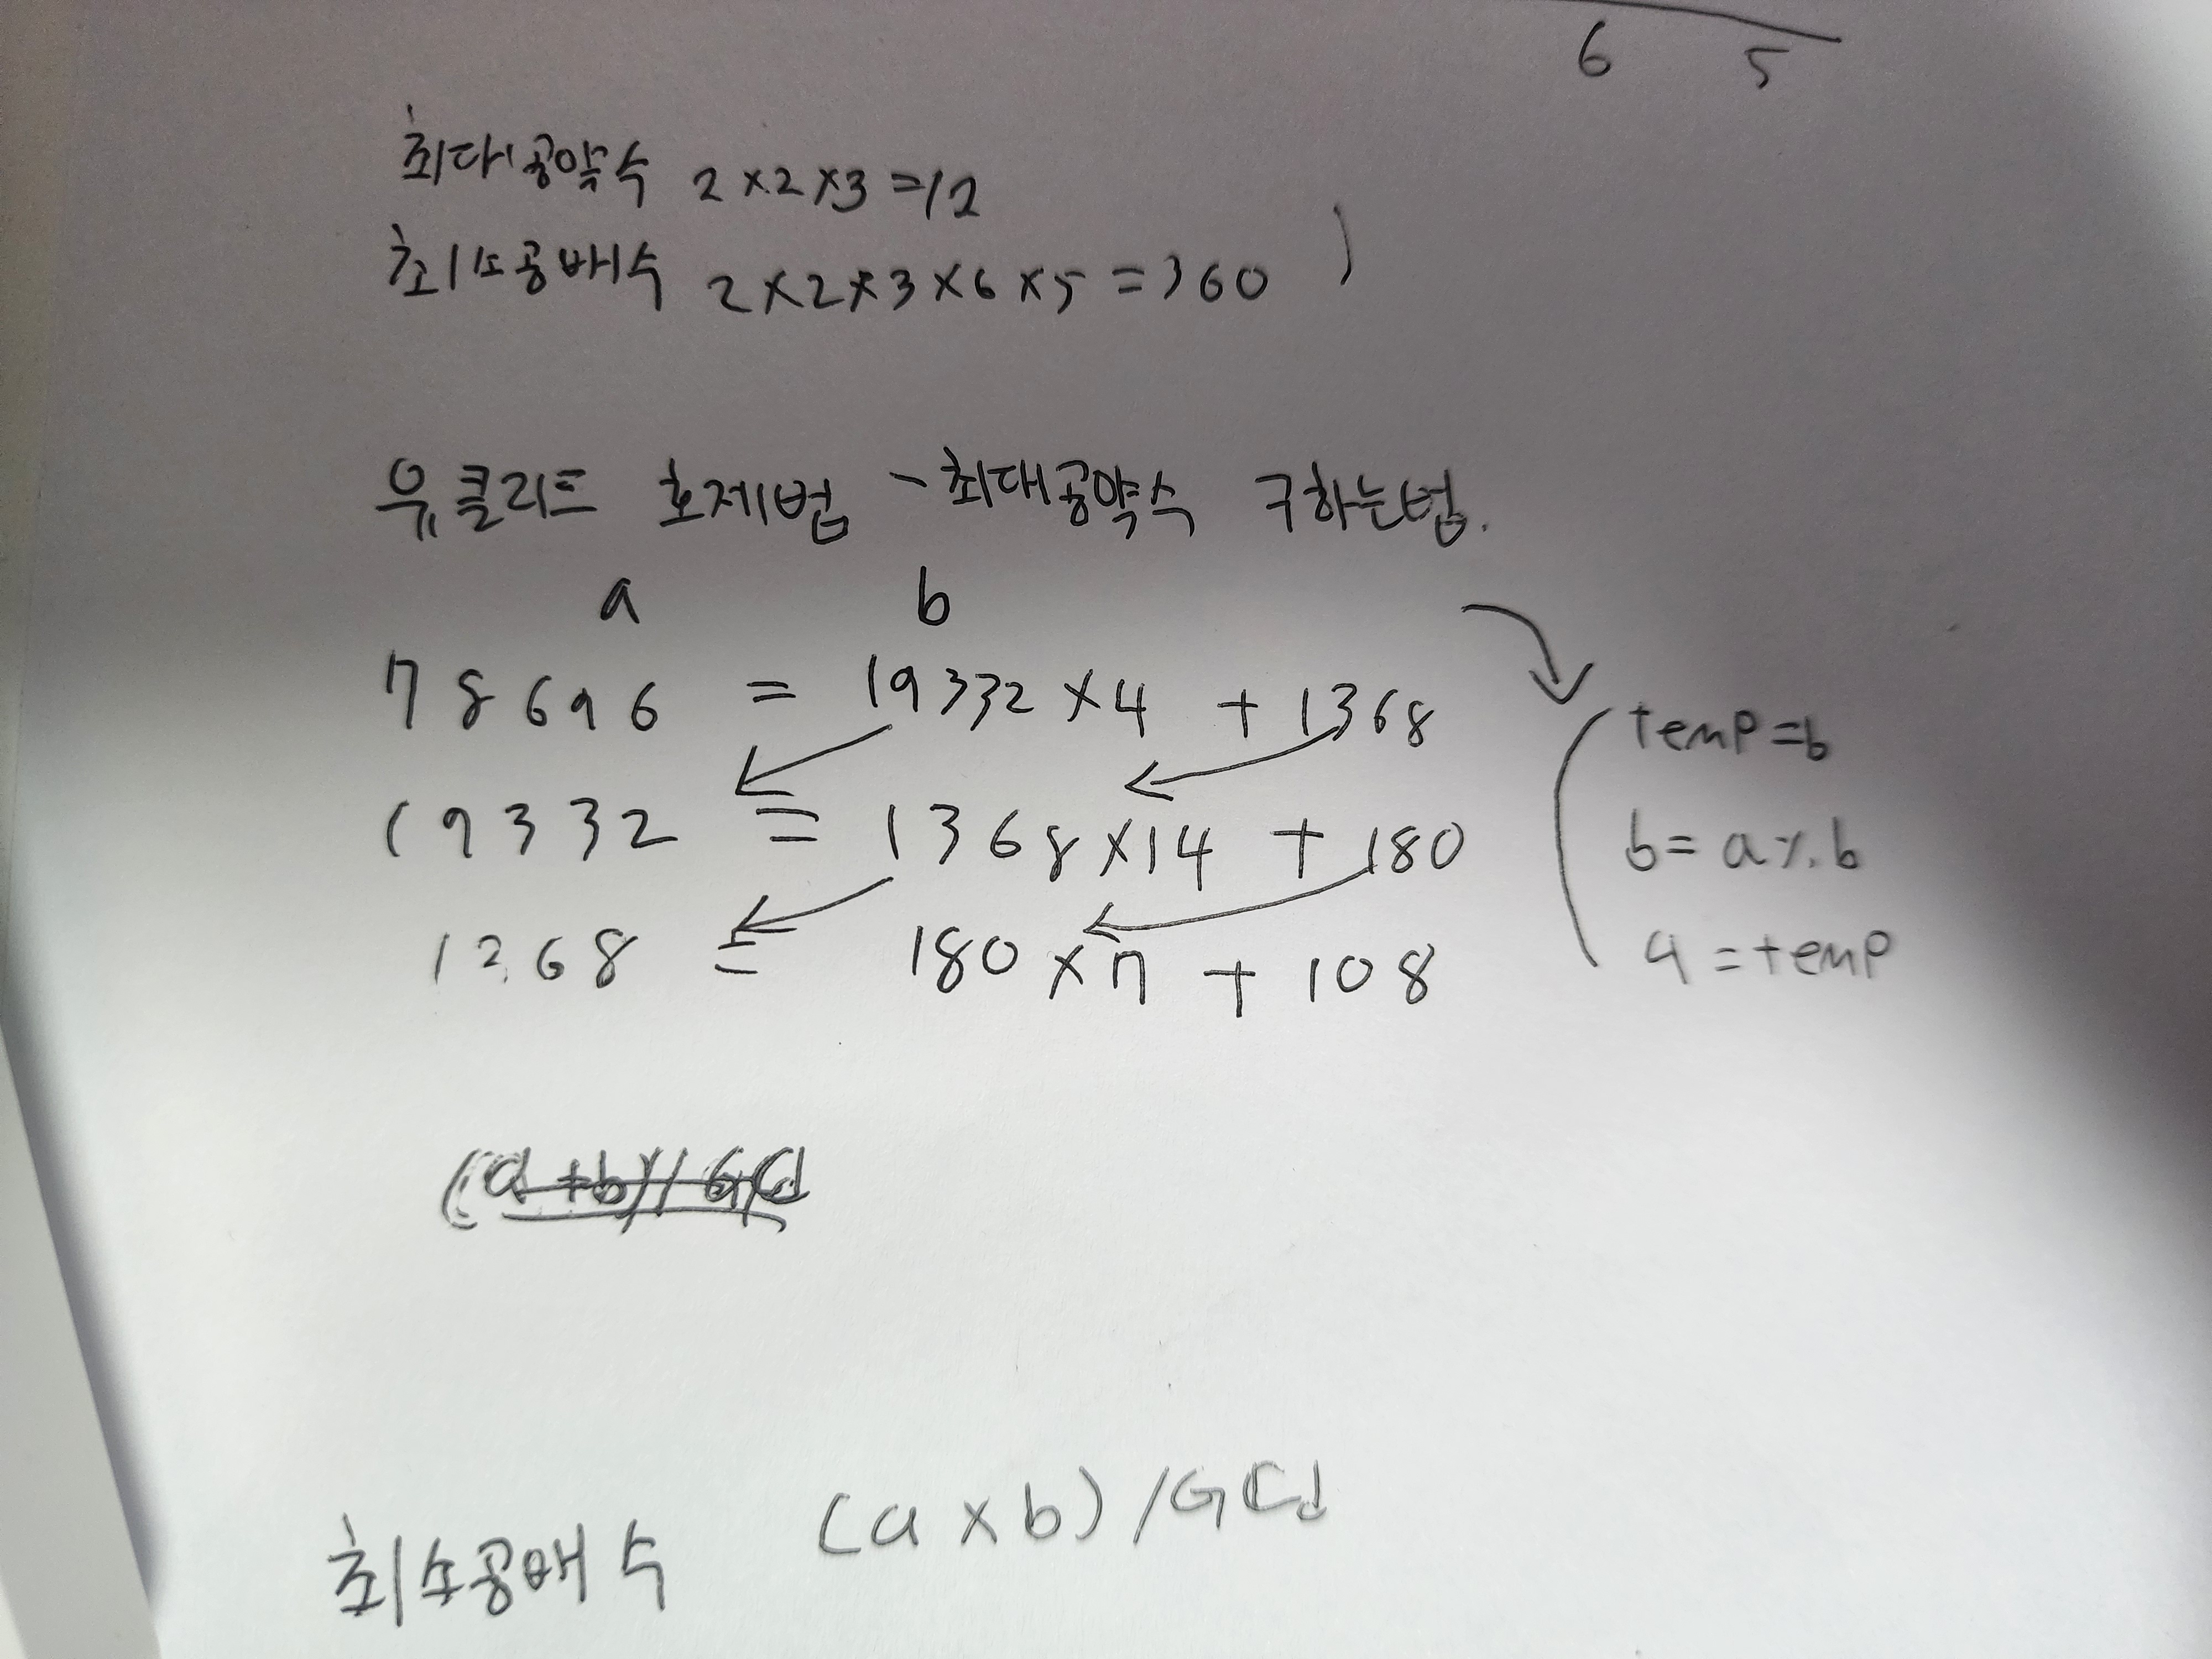 6 5
최대공약수 2×2×3=12
최소공배수 2×2×3×6×5=360 )
유클리드 호제법 - 최대공약수 구하는법.
a b
78696 = 19332×4 + 1368
temp=b
19332 = 1368×14 + 180
b=a%b
1368 = 180×7 + 108
a=temp
(a+b)/GCd
(a×b)/GCd
최소공배수